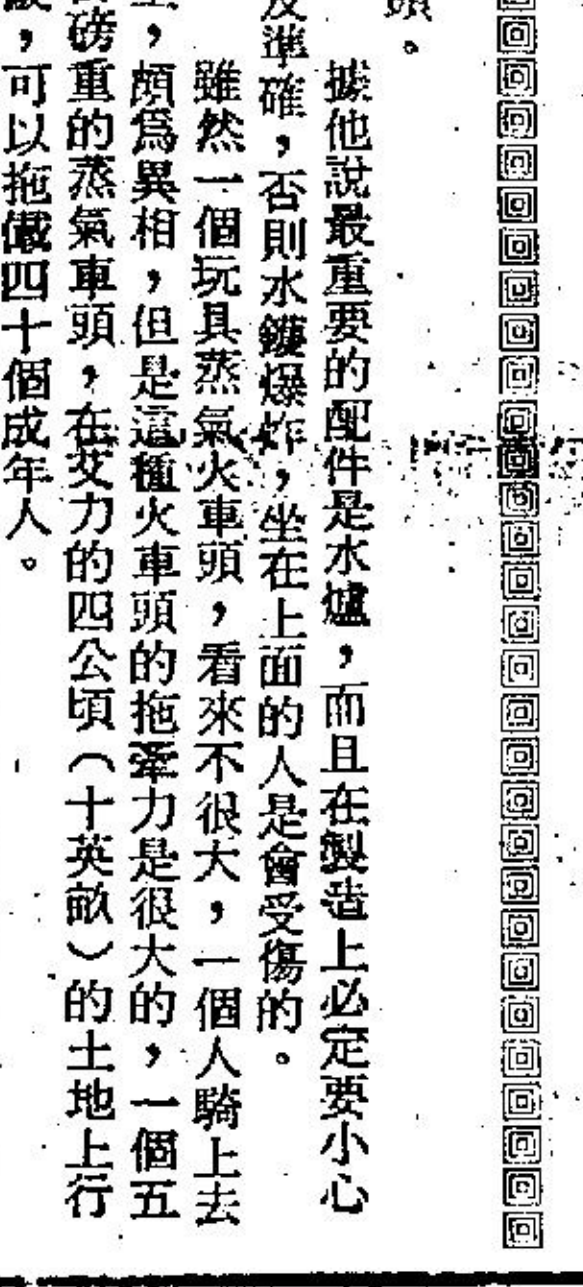 頭。
據他說最重要的配件是水爐，而且在製造上必定要小心
及準確，否則水鑊爆炸，坐在上面的人是會受傷的。
雖然一個玩具蒸氣火車頭，看來不很大，一個人騎上去
，頗爲異相，但是這種火車頭的拖牽力是很大的，一個五
磅重的蒸氣車頭，在艾力的四公頃（十英畝）的土地上行
，可以拖儎四十個成年人。